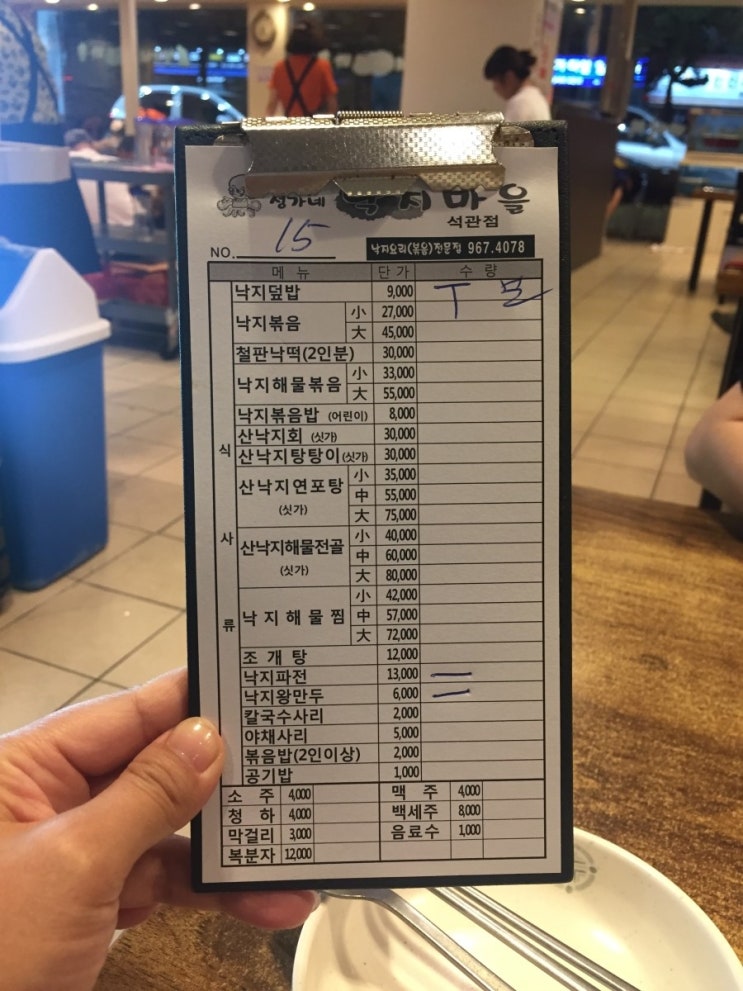 성가네 낙지마을
석관점
NO. 15 낙지요리(볶음)전문점 967.4078
메 뉴 단 가 수 량
식 사 류
낙지덮밥 9,000 T
낙지볶음 小 27,000
大 45,000
철판낙떡(2인분) 30,000
낙지해물볶음 小 33,000
大 55,000
낙지볶음밥 (어린이) 8,000
산낙지회 (싯가) 30,000
산낙지탕탕이(싯가) 30,000
산낙지연포탕 (싯가) 小 35,000
中 55,000
大 75,000
산낙지해물전골 (싯가) 小 40,000
中 60,000
大 80,000
낙지해물찜 小 42,000
中 57,000
大 72,000
조 개 탕 12,000
낙지파전 13,000 一
낙지왕만두 6,000 一
칼국수사리 2,000
야채사리 5,000
볶음밥(2인이상) 2,000
공기밥 1,000
소 주 4,000 맥 주 4,000
청 하 4,000 백세주 8,000
막걸리 3,000 음료수 1,000
복분자 12,000